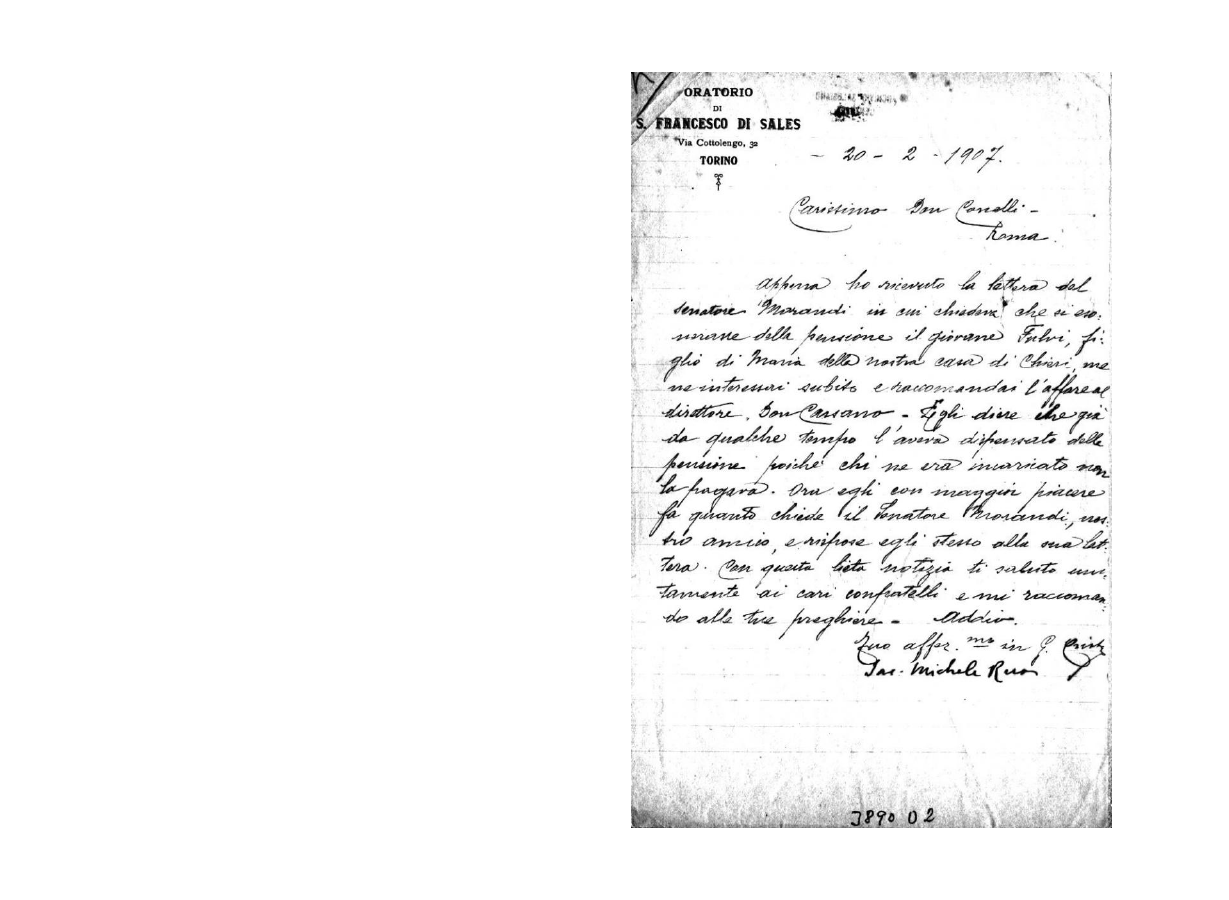 ORATORIO
DI
S. FRANCESCO DI SALES
Via Cottolengo, 32
TORINO
- 20 - 2 - 1907.
Carissimo Don Conelli -
Roma.
Appena ho ricevuto la lettera del
senatore Morandi in cui chiedeva che si eso-
nerasse della pensione il giovane Fulvi, fi-
glio di Maria della nostra casa di Chieri, me
ne interessai subito e raccomandai l'affare al
direttore, Don Cassano - Egli dice che già
da qualche tempo l'aveva dispensato dalla
pensione poiché chi ne era incaricato non
la pagava. Ora egli con maggior piacere
fa quanto chiede il Senatore Morandi, nos-
tro amico, e rispose egli stesso alla sua let-
tera. Con questa lieta notizia ti saluto uni-
tamente ai cari confratelli e mi raccoman-
do alle tue preghiere - Addio.
Tuo affez.mo in G. Cristo
Sac. Michele Rua
3890 D 2